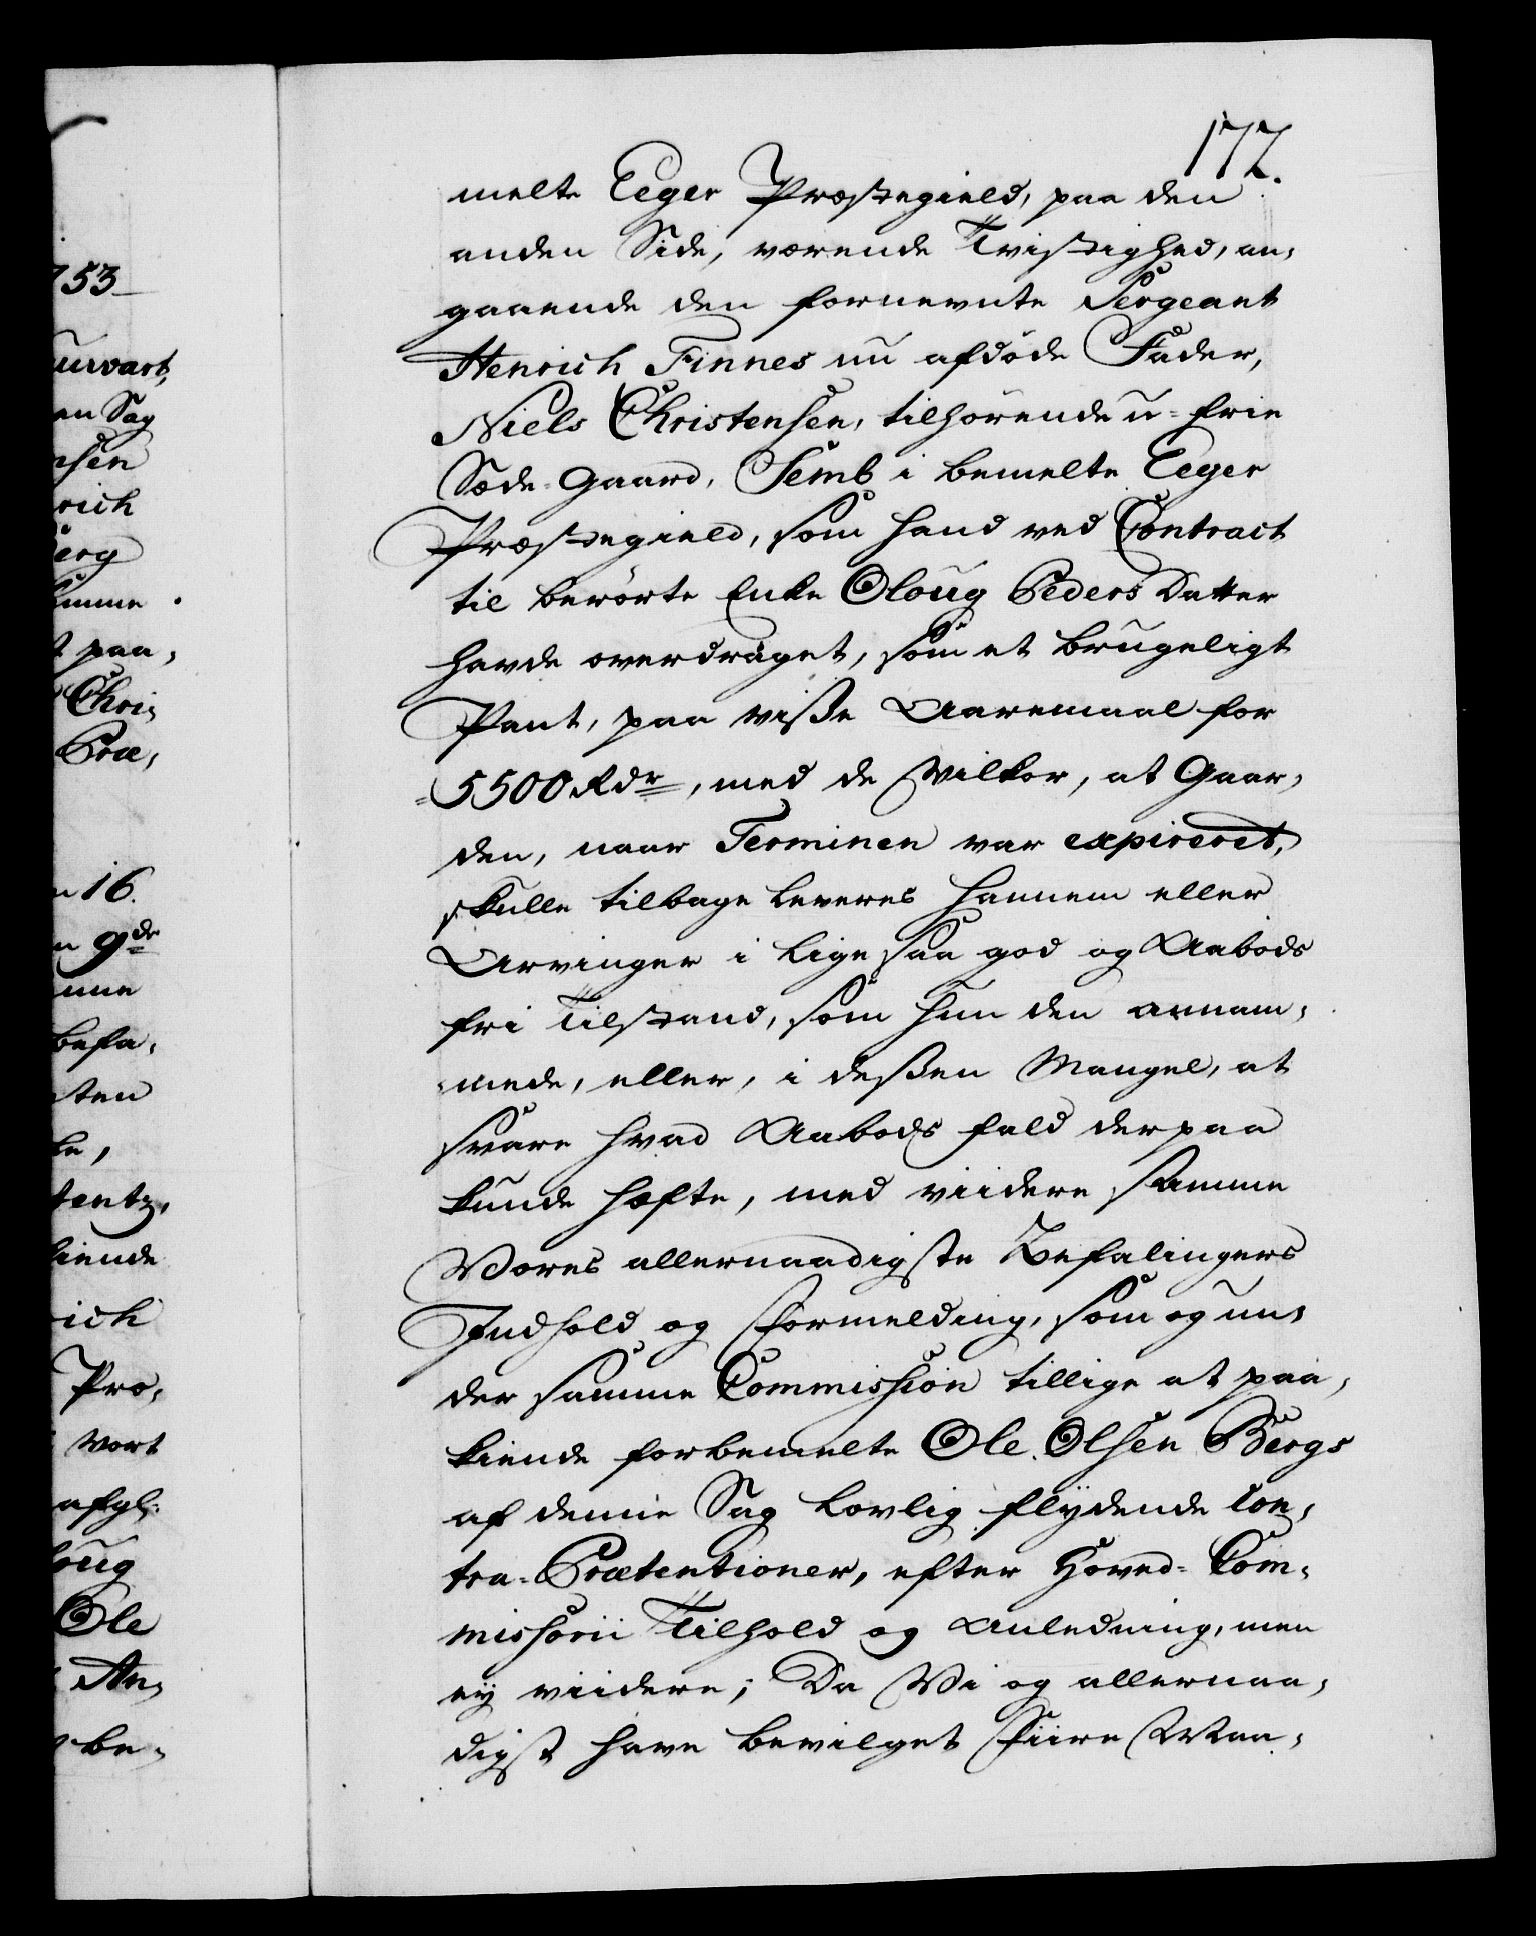 177.
melte Eeger Præstegield, paa den
anden Side, værende Tvistighed, an,
gaaende den fornevnte Sergeant
Henrich Finnes nu afdøde Fader,
Niels Christensen, tilhørende u-frie
Sæde-Gaard, Semb i bemelte Eeger
Præstegield, som hand ved Contract
til berørte Enke Oloug Peders Datter
havde overdraget, som et brugeligt
Pant, paa visse Aaremaal for
5500 Rdr, med de Vilkor, at Gaar,
den, naar Terminen var expireret,
skulle tilbage leveres hannem eller
Arvinger i lige saa god og Aabods
fri Tilstand, som hun den annam,
mede, eller, i dessen Mangel, at
svare hvad Aabods fald derpaa
kunde hæfte, med viidere samme
Vores allernaadigste Befalingers
Indhold og Formelding, som og un,
der samme Commission tillige at paa,
kiende forbemelte Ole Olsen Bergs
af denne Sag lovlig flydende Con,
tra-Prætentioner, efter Hoved-Com,
missorii Tilhold og Anledning, men
ey viidere; Da Vi og allernaa,
digst have bevilget Fiire Maa,
753
urvart,
en Sag
nsen
rich
Berg
t paa,
Chri,
Præ,
16.
9de
befa,
sten
tentz,
kiende
rich
Pro,
vort
afgl:
oug
Ole
An,
be,